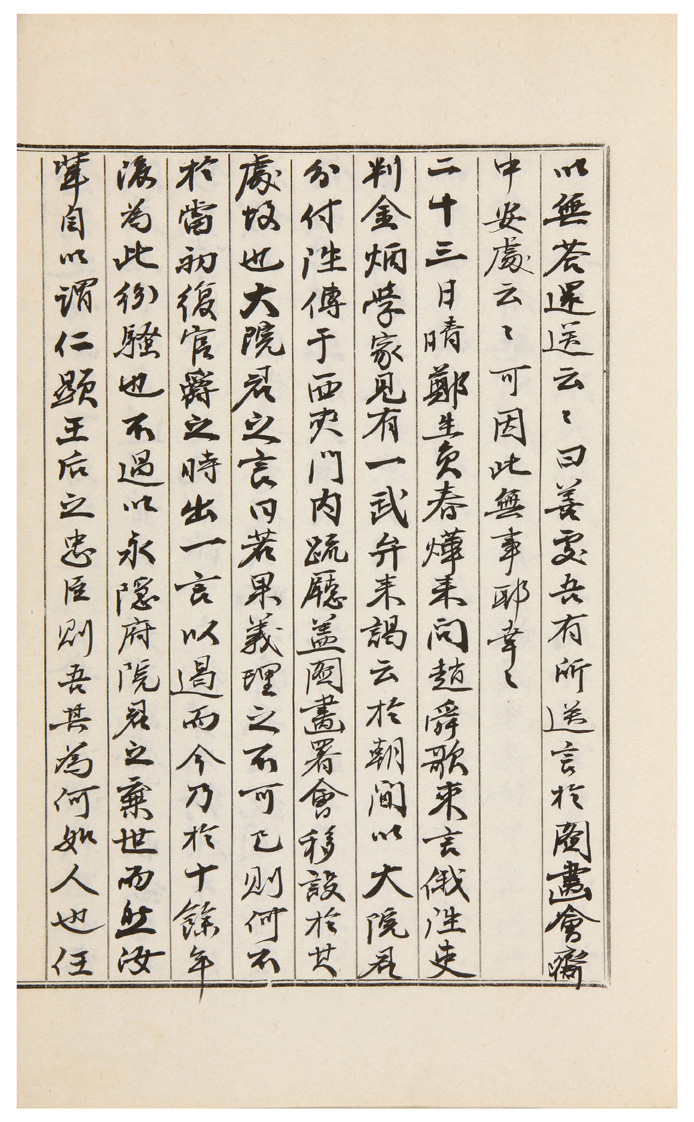 以無答還送云〻曰善處吾有所送言於圖畫會齋
中安處云〻可因此無事耶幸〻
二十三日晴鄭生員春燁来問趙舜歌来言俄進吏
判金炳學家見有一武弁来謁云於朝間以大院君
分付進傳于西夾門内疏廳盖圖畫署會移設於其
處故也大院君之言曰若果義理之不可已則何不
於當初復官爵之時出一言以遏而今乃於十餘年
後為此紛騷也不過以永隱府院君之棄世而然汝
輩自以謂仁顯王后之忠臣則吾其為何如人也任